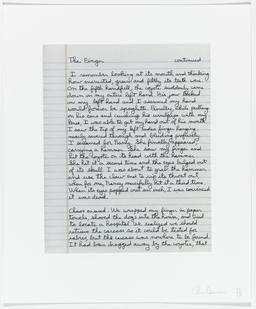 The Finger continued
I remember looking at its mouth and thinking
how encrusted, gross and filthy its teeth were.
On the fifth handful, the coyote suddenly came
down on my entire left hand. His jaw locked
on my left hand and I assumed my hand
would forever be spaghetti. Finally, while pulling
on his ears and cursing his with my
I was able to get my hand out of his mouth.
I saw the tip of my left index finger hanging
nearly severed through and bleeding profusely.
I screamed for Nancy. She finally appeared
carrying a hammer. She saw my finger and
hit the coyote on its head with the hammer.
She hit it a second time and its eyes bulged out
of its skull. I was about to grab the hammer
and use the claw end to rip its throat out,
when for me, Nancy mercifully hit it a third time.
When its eyes popped out I was convinced
it was dead.
Chaos ensued. We wrapped my finger in paper
towels, shoved the dogs into the house, and tried
to locate a hospital. We realized we should
retrieve the carcass so it could be tested for
rabies, but the carcass was nowhere to be found.
It had been dragged away by the coyotes, that